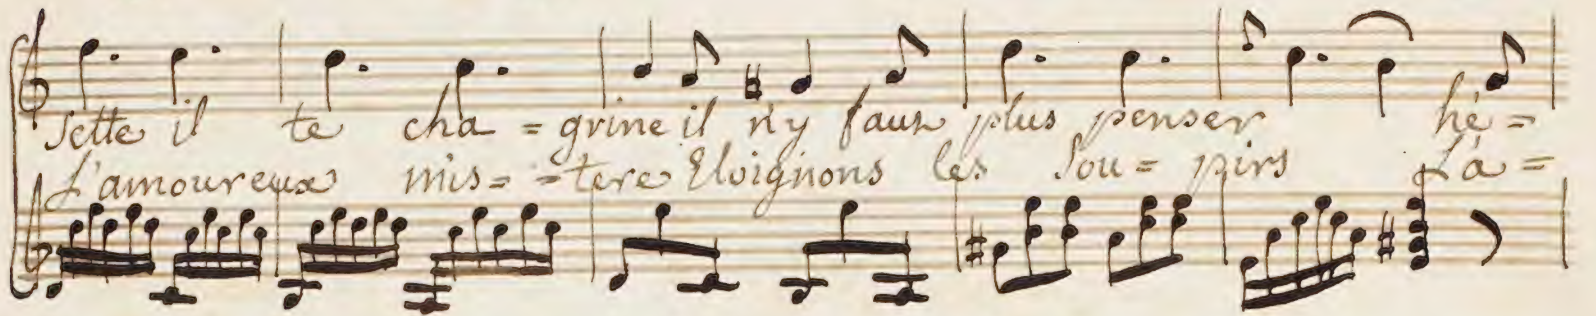 sette il te cha = grine il n'y faut plus penser hé =
L'amoureux mis = = tere Eloignons les Sou = pirs L'a =